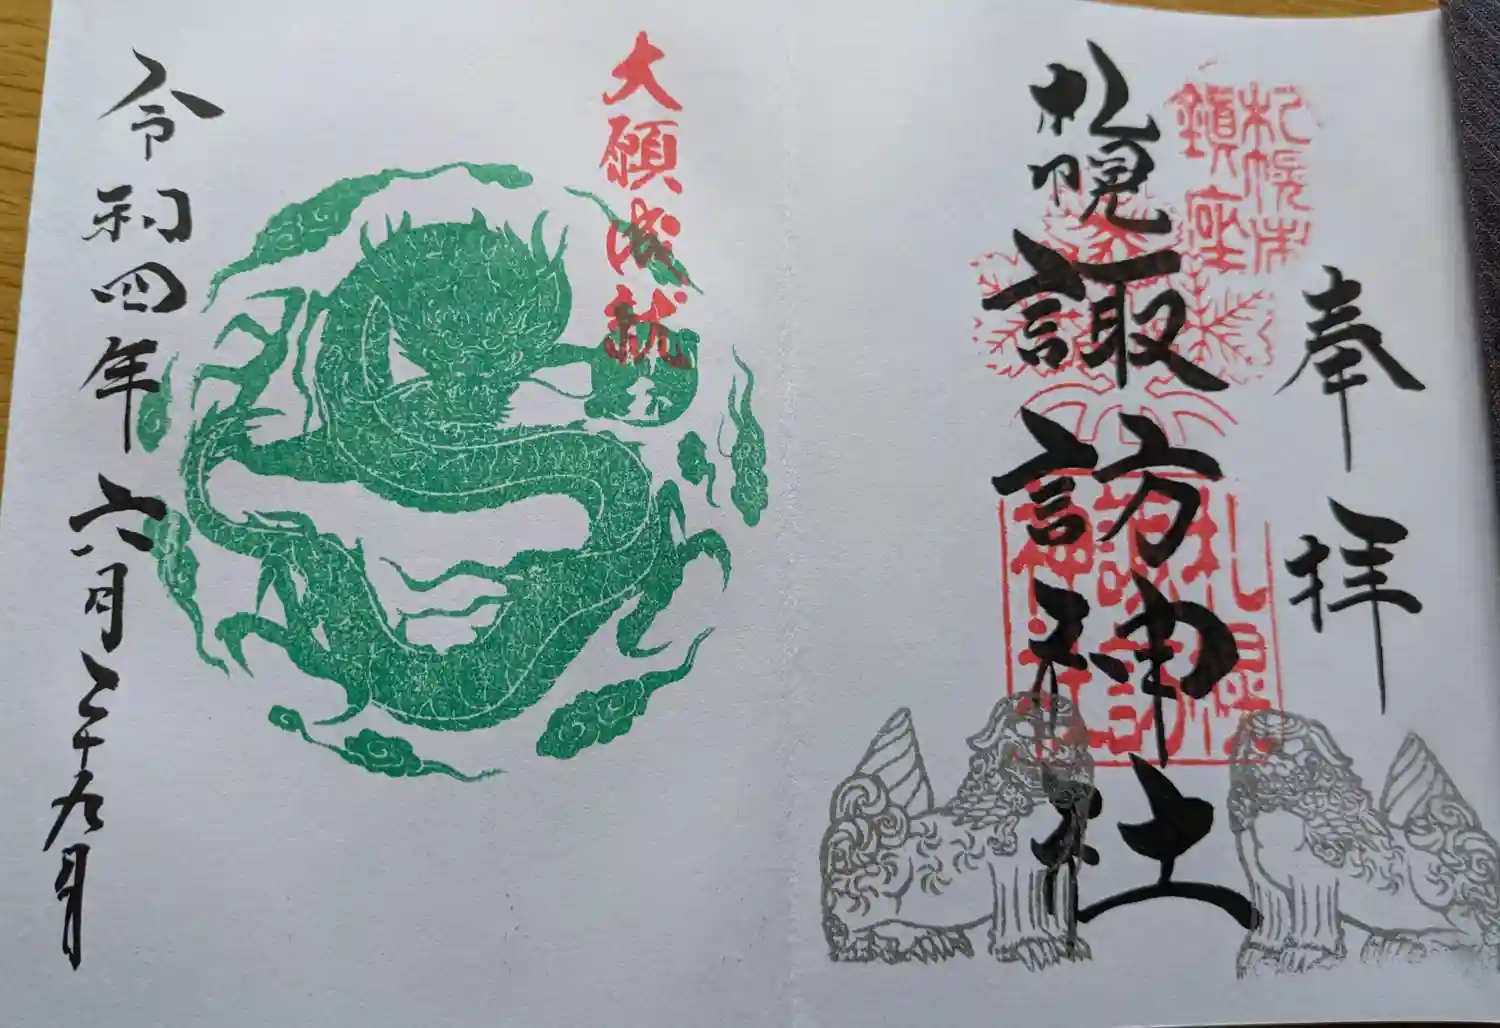 奉拝
札幌市
鎮座
札幌諏訪神社
札幌
諏訪
神社
大願成就
令和四年六月二十九日